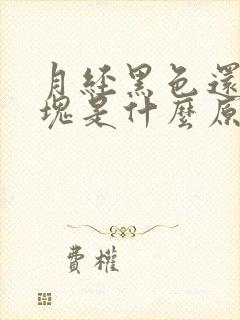 月經黑色還
塊是什麼原
費權